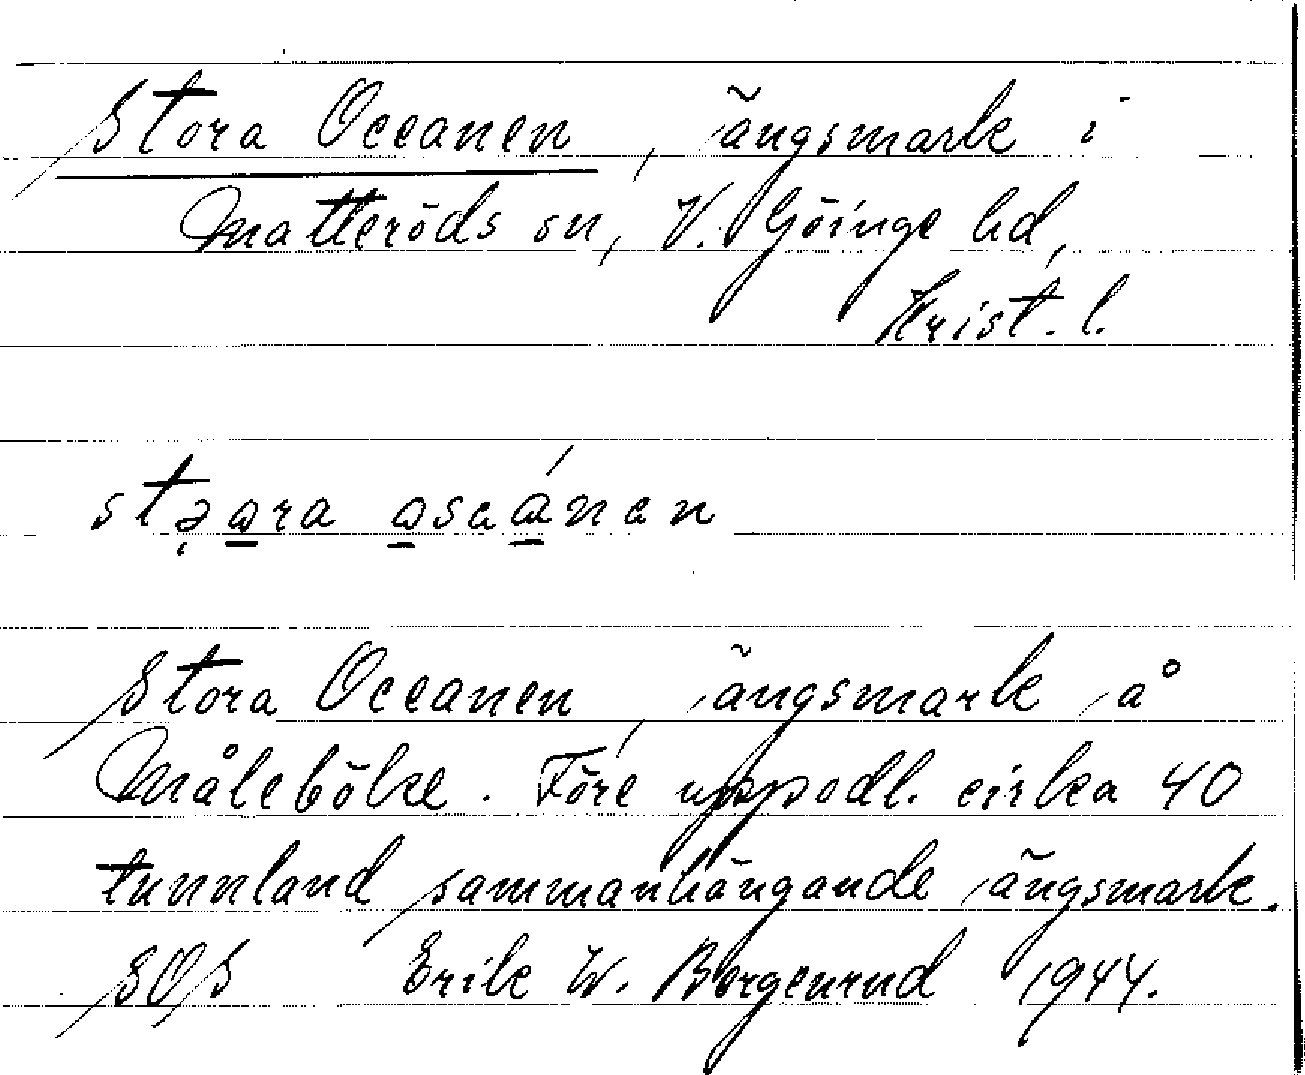 Stora Oceanen, ängsmark i
Matteröds sn, V. Göinge hd,
Krist. l.
Stora Oceanen, ängsmark å
Målebölke. Före uppodl. cirka 40
tunnland sammanhängande ängsmark.
SOS Erik W. Borgenrud 1944.